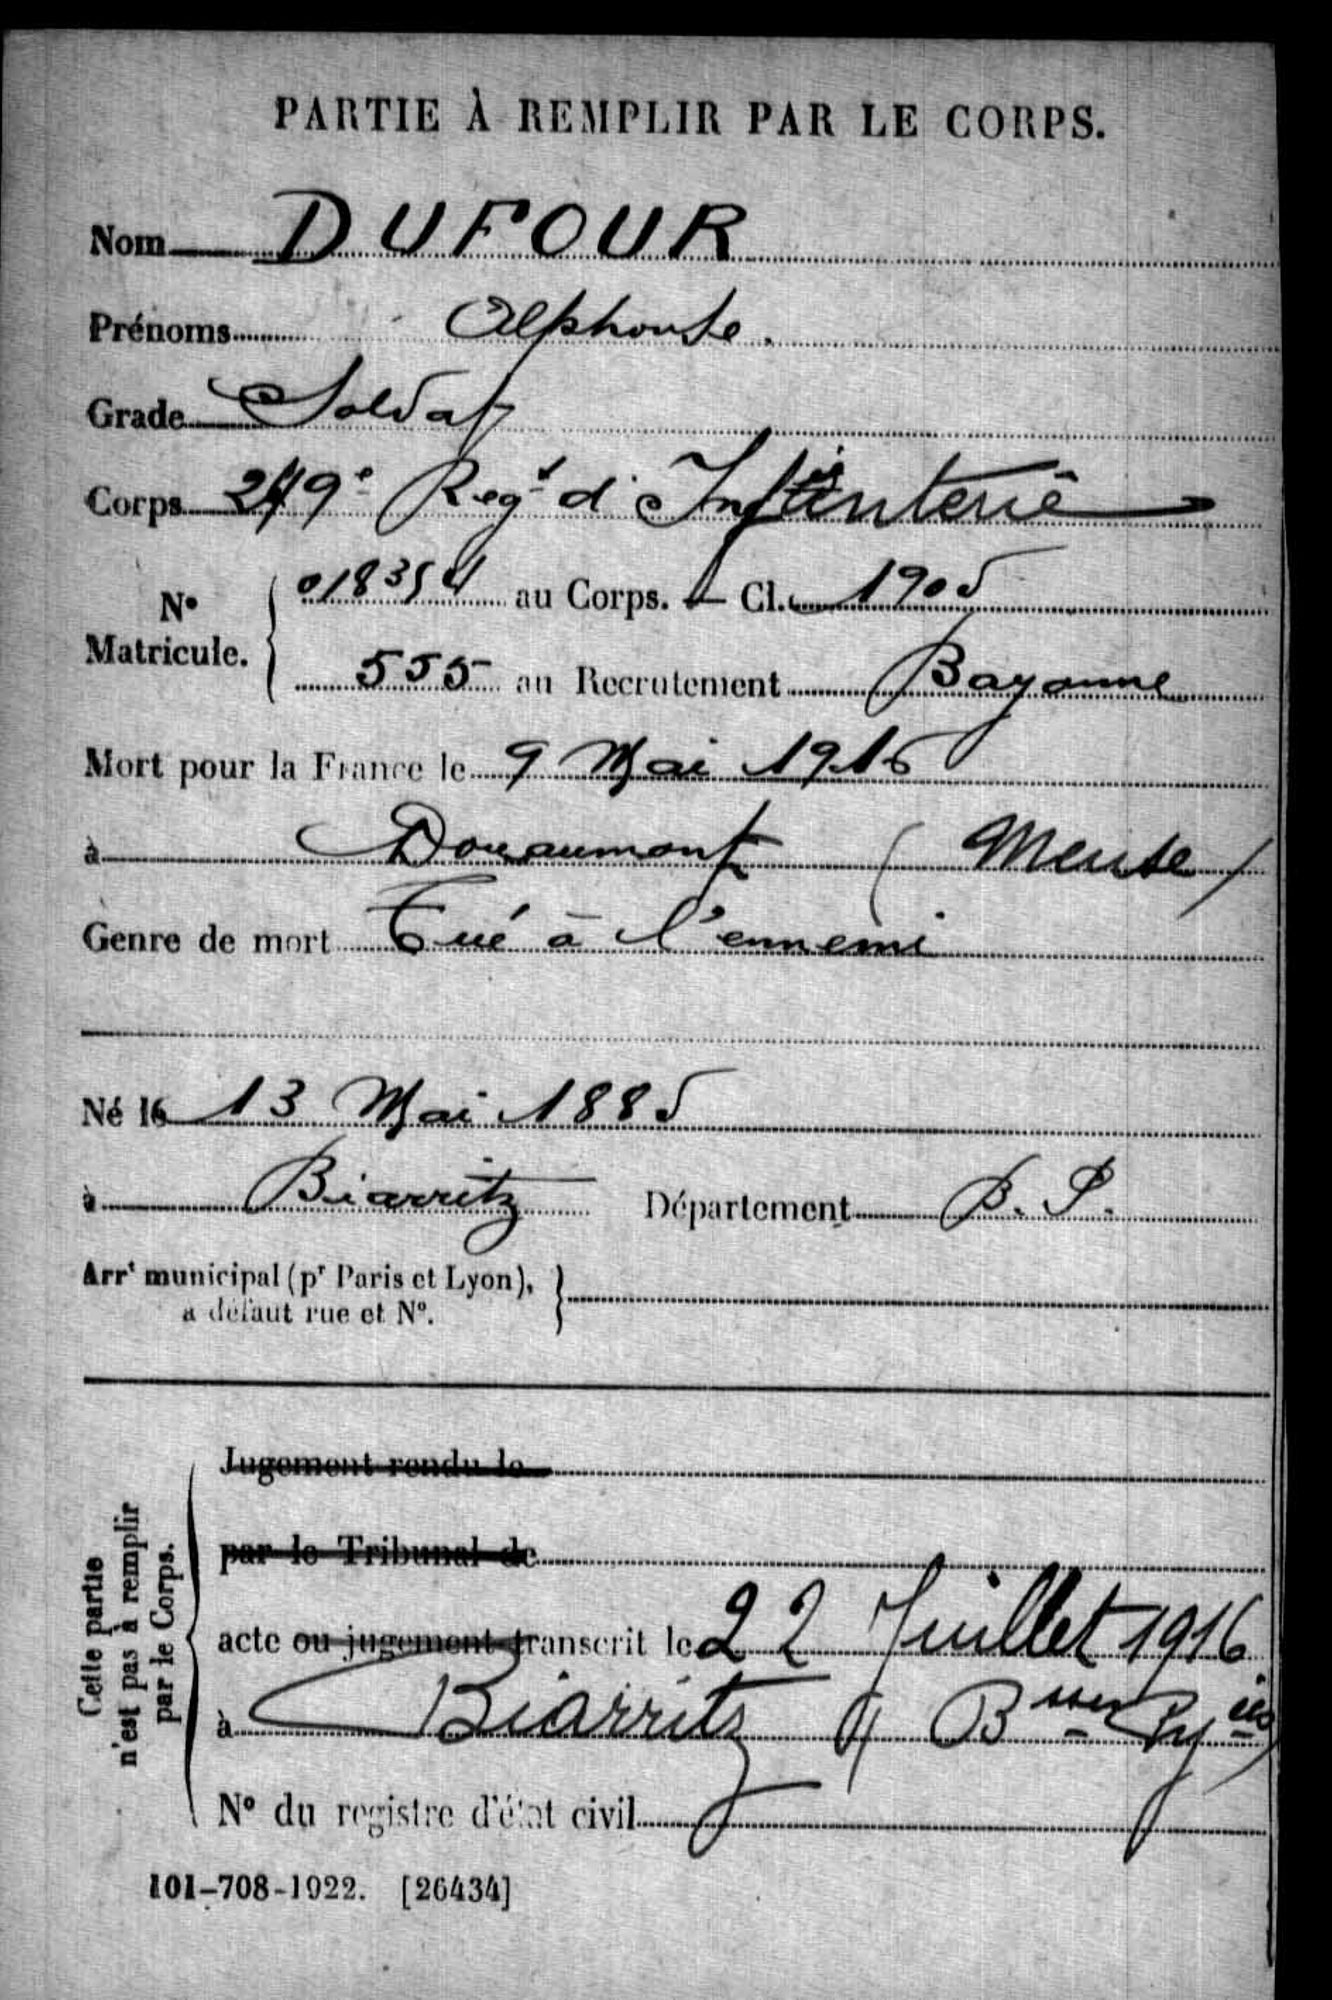 PARTIE À REMPLIR PAR LE CORPS.
Nom DUFOUR
Prénoms Alphonse.
Grade Soldat
Corps 249e Regt d'Infanterie
N° Matricule. 018354 au Corps. — Cl. 1905
555 au Recrutement Bayonne
Mort pour la France le 9 Mai 1916
à Douaumont (Meuse)
Genre de mort Tué à l'ennemi
Né le 13 Mai 1885
à Biarritz Département B. P.
Arrt municipal (pr Paris et Lyon),
à défaut rue et N°.
Cette partie
n'est pas à remplir
par le Corps.
Jugement rendu le
par le Tribunal de
acte ou jugement transcrit le 22 Juillet 1916
à Biarritz (Bsses Pyées)
N° du registre d'état civil
101-708-1922. [26434]